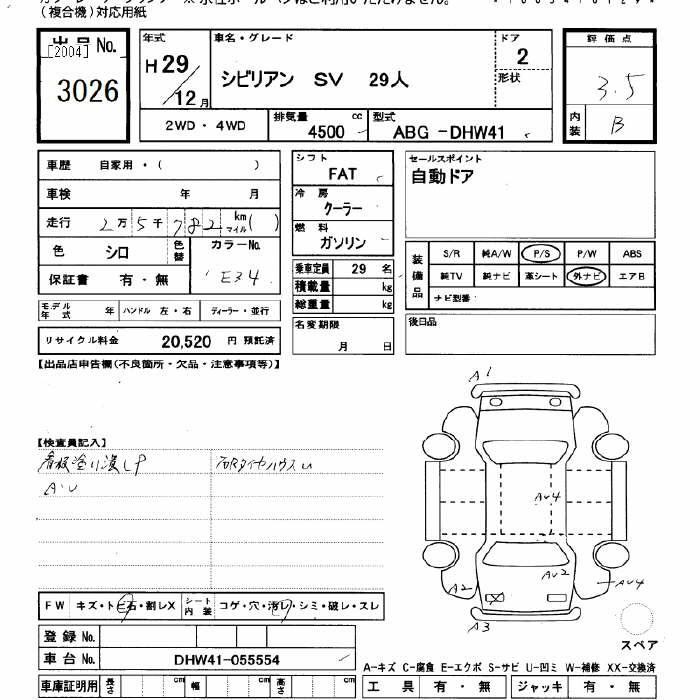 (複合機)対応用紙
出品No.
[2004]
3026
年式
H29/12月
車名・グレード
シビリアン SV 29人
ドア
2
形状
評価点
3.5
内装
B
2WD・4WD
排気量 4500 cc
型式 ABG-DHW41
車歴 自家用・( )
車検 年 月
走行 2万5千782 km マイル( )
色 シロ
色替
カラーNo.
E34
保証書 有・無
モデル年式 年 ハンドル 左・右 ディーラー・並行
リサイクル料金 20,520 円 預託済
シフト
FAT
冷房
クーラー
燃料
ガソリン
乗車定員 29 名
積載量 kg
総重量 kg
名変期限
月 日
セールスポイント
自動ドア
装備品
S/R 純A/W P/S P/W ABS
純TV 純ナビ 革シート 外ナビ エアB
ナビ型番:
後日品
【出品店申告欄(不良箇所・欠品・注意事項等)】
【検査員記入】
看板塗り潰しP
右Rタイヤハウスu
A・U
A1
Au4
Au2
A2
Au4
A3
X
スペア
FW キズ・トビ石・割レX
シート内装 コゲ・穴・汚レ・シミ・破レ・スレ
登録No.
車台No. DHW41-055554
A-キズ C-腐食 E-エクボ S-サビ U-凹ミ W-補修 XX-交換済
車庫証明用 長さ cm 幅 cm 高さ cm
工具 有・無 ジャッキ 有・無